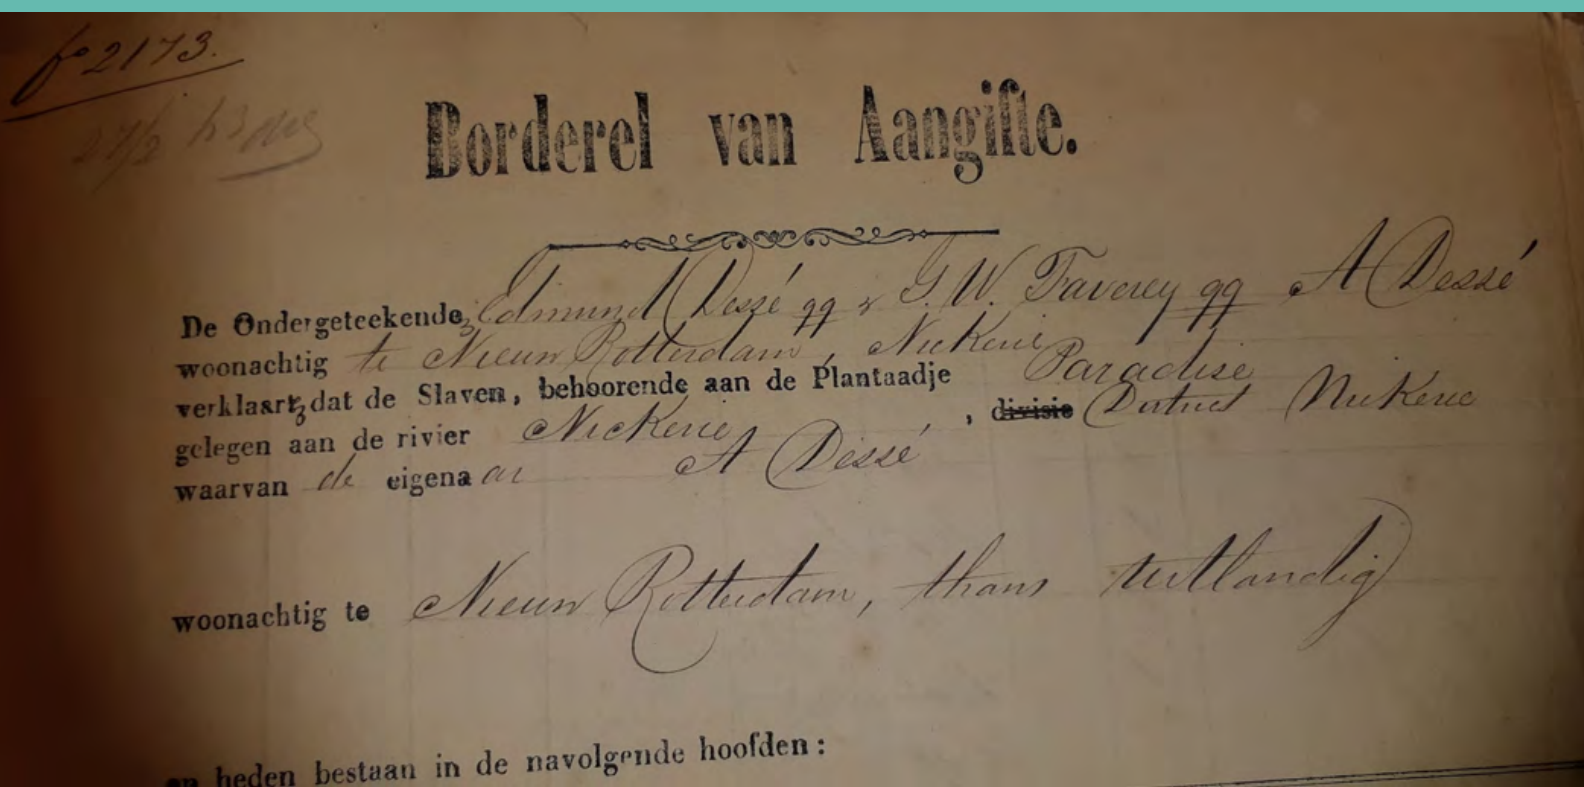 fo 2173.
27/2
Borderel van Aangifte.
De Ondergeteekende, Edmund Dessé qq & G. W. Faverey qq A Dessé
woonachtig te Nieuw Rotterdam, Nickerie
verklaart, dat de Slaven, behoorende aan de Plantaadje Paradise
gelegen aan de rivier Nickerie, divisie District Nickerie
waarvan de eigenaar A Dessé
woonachtig te Nieuw Rotterdam, thans uitlandig
op heden bestaan in de navolgende hoofden: